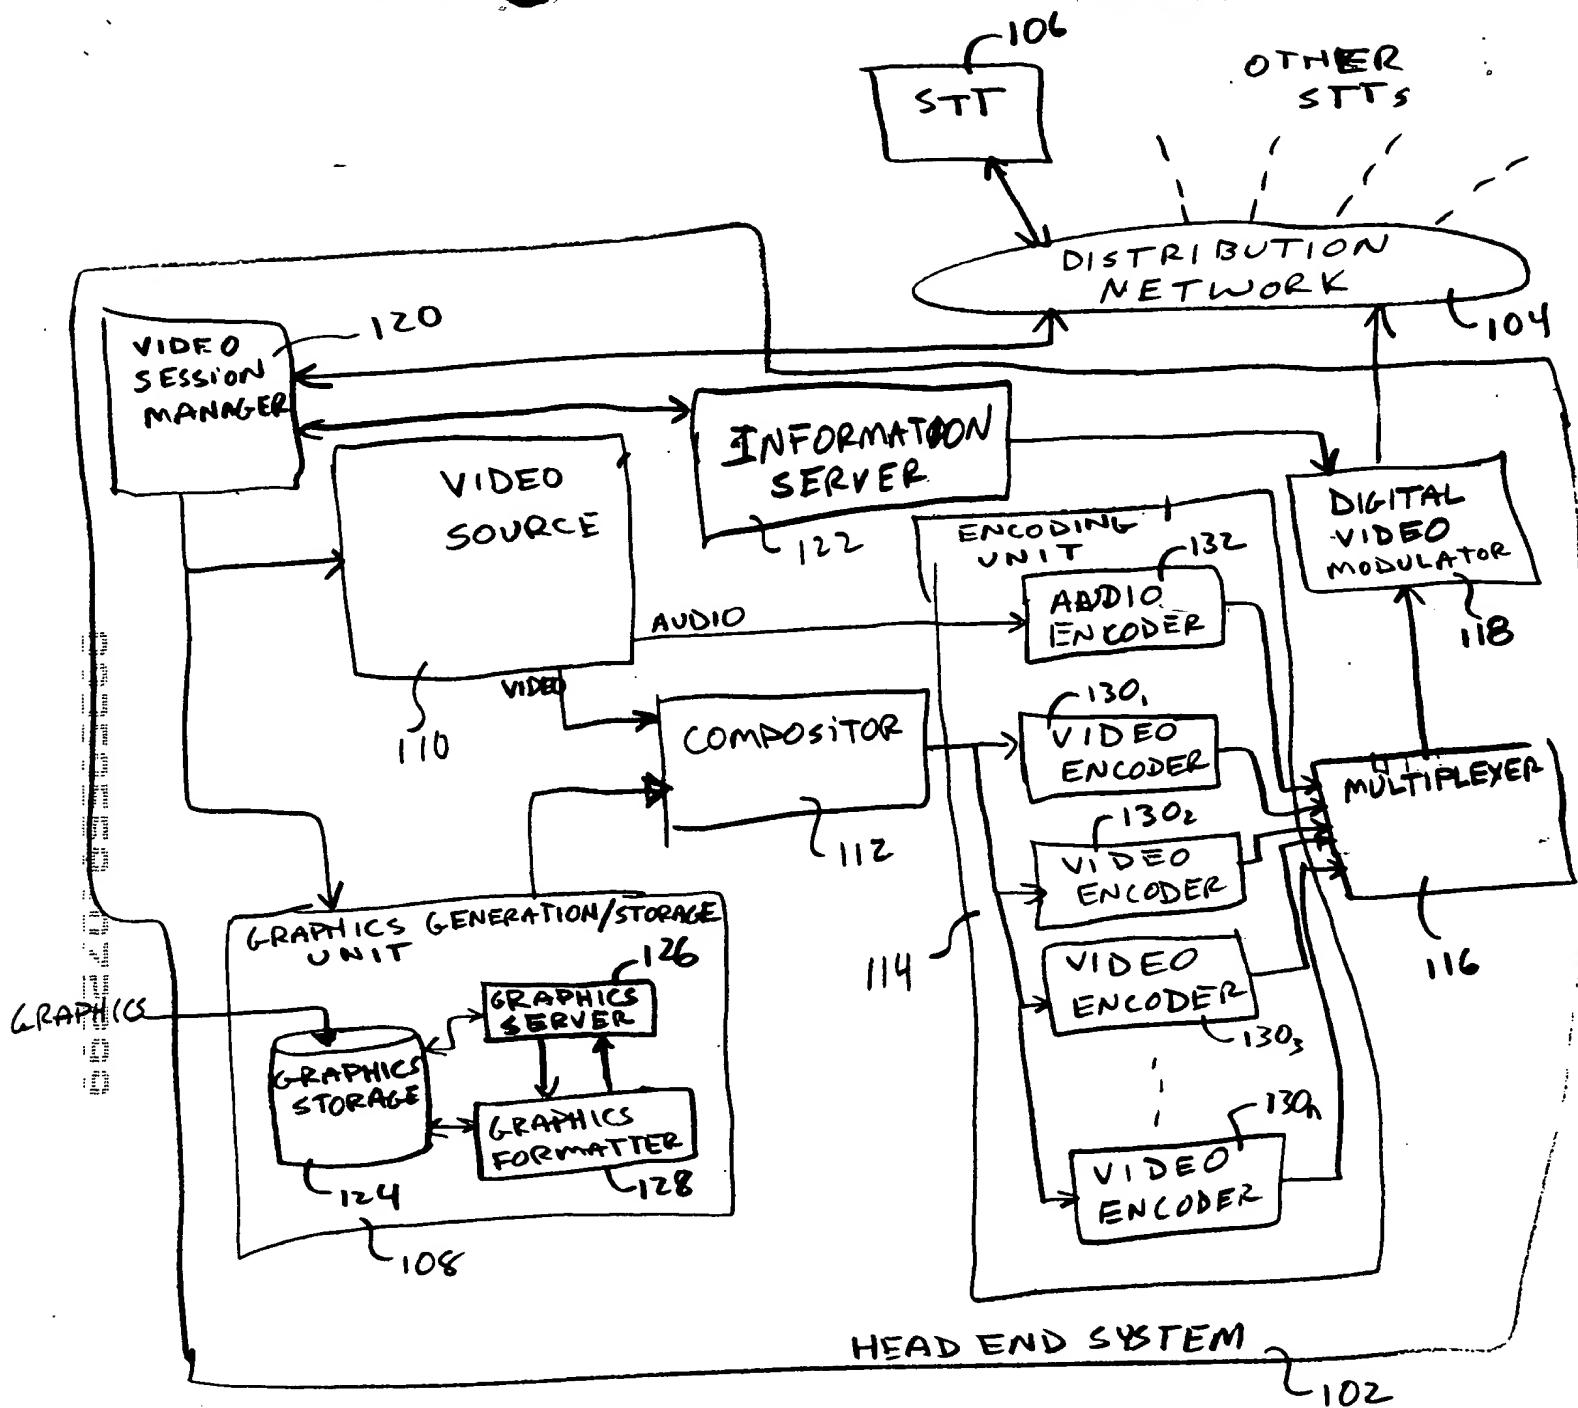 106
STT
OTHER
STTs
DISTRIBUTION
NETWORK
104
120
VIDEO
SESSION
MANAGER
INFORMATION
SERVER
122
VIDEO
SOURCE
110
AUDIO
VIDEO
ENCODING
UNIT
132
AUDIO
ENCODER
DIGITAL
VIDEO
MODULATOR
118
130₁
VIDEO
ENCODER
COMPOSITOR
112
MULTIPLEXER
116
130₂
VIDEO
ENCODER
114
VIDEO
ENCODER
130₃
130n
VIDEO
ENCODER
GRAPHICS GENERATION/STORAGE
UNIT
126
GRAPHICS
SERVER
GRAPHICS
GRAPHICS
STORAGE
124
GRAPHICS
FORMATTER
128
108
HEAD END SYSTEM
102